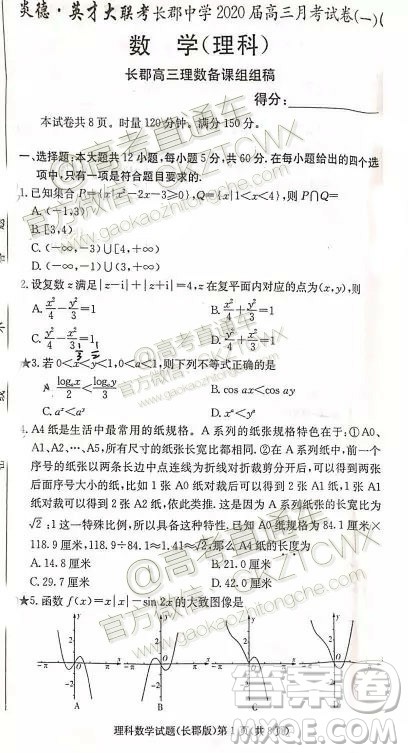 炎德·英才大联考长郡中学2020届高三月考试卷(一)
数 学(理科)
长郡高三理数备课组组稿
得分:
本试卷共8页。时量120分钟。满分150分。
一、选择题:本大题共12小题,每小题5分,共60分.在每小题给出的四个选
项中,只有一项是符合题目要求的.
1.已知集合P={x|x²-2x-3≥0},Q={x|1<x<4},则P∩Q=
A.(-1,3)
B.[3,4)
C.(-∞,-3)∪[4,+∞)
D.(-∞,-1)∪(3,+∞)
2.设复数z满足|z-i|+|z+i|=4,z在复平面内对应的点为(x,y),则
A. x²/4 - y²/3 =1 B. x²/4 + y²/3 =1
C. y²/4 - x²/3 =1 D. y²/4 + x²/3 =1
★3.若0<x<y<1,0<a<1,则下列不等式正确的是
B. cos ax<cos ay
C. aˣ<aʸ D. xᵃ<yᵃ
4.A4纸是生活中最常用的纸规格。A系列的纸张规格特色在于:①A0、
A1、A2、…、A5,所有尺寸的纸张长宽比都相同.②在A系列纸中,前一个
序号的纸张以两条长边中点连线为折线对折裁剪分开后,可以得到两张
后面序号大小的纸,比如1张A0纸对裁后可以得到2张A1纸,1张A1
纸对裁可以得到2张A2纸,依此类推.这是因为A系列纸张的长宽比为
√2:1这一特殊比例,所以具备这种特性.已知A0纸规格为84.1厘米×
118.9厘米,118.9÷84.1≈1.41≈√2,那么A4纸的长度为
A.14.8厘米 B.21.0厘米
C.29.7厘米 D.42.0厘米
★5.函数f(x)=x|x|-sin 2x的大致图像是
A B C D
理科数学试题(长郡版)第1页(共8页)
@高考直通车
官方微信:GKZTCWX
www.gaokaozhitongche.com